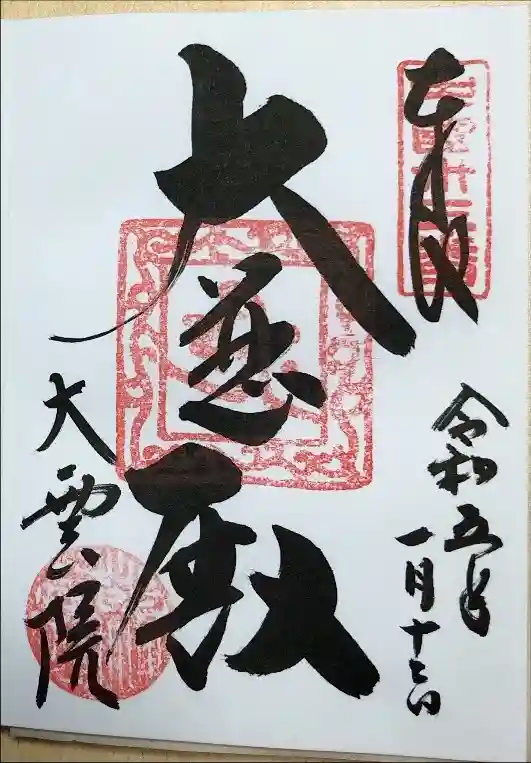 奉拝
令和五年
一月十二日
大慈殿
大雲院